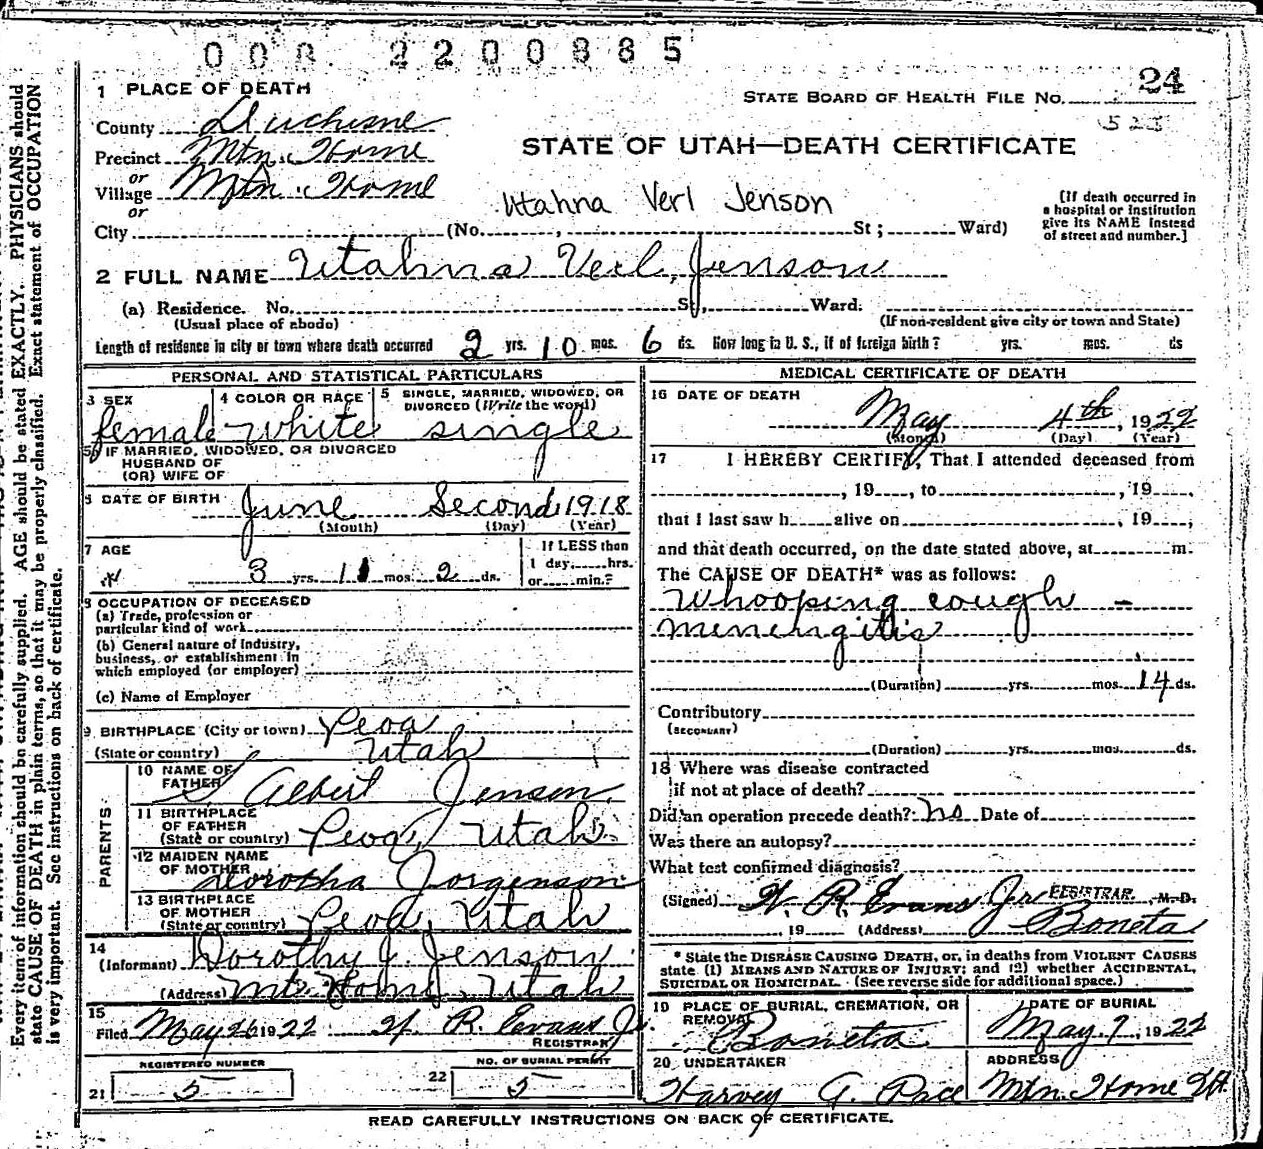 008 2200885
24
1 PLACE OF DEATH
STATE BOARD OF HEALTH FILE NO.
523
County Duchesne
Precinct Mtn. Home
STATE OF UTAH—DEATH CERTIFICATE
or
Village Mtn. Home
or
Utahna Verl Jenson
[If death occurred in
a hospital or institution
give its NAME instead
of street and number.]
City (No. , St ; Ward)
2 FULL NAME Utahna Verl Jenson
(a) Residence. No. St., Ward.
(Usual place of abode) (If non-resident give city or town and State)
Length of residence in city or town where death occurred 2 yrs. 10 mos. 6 ds. How long in U. S., if of foreign birth? yrs. mos. ds
PERSONAL AND STATISTICAL PARTICULARS
3 SEX
female
4 COLOR OR RACE
white
5 SINGLE, MARRIED, WIDOWED, OR
DIVORCED (Write the word)
single
IF MARRIED, WIDOWED, OR DIVORCED
HUSBAND OF
(OR) WIFE OF
6 DATE OF BIRTH June Second 1918
(Month) (Day) (Year)
7 AGE
3 yrs. 11 mos. 2 ds.
If LESS than
1 day, hrs.
or min.?
8 OCCUPATION OF DECEASED
(a) Trade, profession or
particular kind of work
(b) General nature of industry,
business, or establishment in
which employed (or employer)
(c) Name of Employer
9 BIRTHPLACE (City or town) Peoa
(State or country) Utah
PARENTS
10 NAME OF
FATHER S. Albert Jensen
11 BIRTHPLACE
OF FATHER
(State or country) Peoa, Utah
12 MAIDEN NAME
OF MOTHER Dorotha Jorgenson
13 BIRTHPLACE
OF MOTHER
(State or country) Peoa, Utah
14
(Informant) Dorothy J. Jenson
(Address) Mt. Home, Utah
15
Filed May 26 1922 W. R. Evans Jr.
REGISTRAR
REGISTERED NUMBER
21 5
NO. OF BURIAL PERMIT
22 5
MEDICAL CERTIFICATE OF DEATH
16 DATE OF DEATH
May 4th, 1922
(Month) (Day) (Year)
17 I HEREBY CERTIFY, That I attended deceased from
, 19 , to , 19 ,
that I last saw h alive on , 19 ,
and that death occurred, on the date stated above, at m.
The CAUSE OF DEATH* was as follows:
Whooping cough –
meningitis
(Duration) yrs. mos. 14 ds.
Contributory
(SECONDARY)
(Duration) yrs. mos. ds.
18 Where was disease contracted
if not at place of death?
Did an operation precede death? no Date of
Was there an autopsy?
What test confirmed diagnosis?
(Signed) W. R. Evans Jr REGISTRAR, M.D.
, 19 (Address) Boneta
* State the DISEASE CAUSING DEATH, or, in deaths from VIOLENT CAUSES
state (1) MEANS AND NATURE OF INJURY; and (2) whether ACCIDENTAL,
SUICIDAL OR HOMICIDAL. (See reverse side for additional space.)
19 PLACE OF BURIAL, CREMATION, OR
REMOVAL
Boneta
DATE OF BURIAL
May 7, 1922
20 UNDERTAKER
Harvey A. Pace
ADDRESS
Mtn. Home Ut.
READ CAREFULLY INSTRUCTIONS ON BACK OF CERTIFICATE.
Every item of information should be carefully supplied. AGE should be stated EXACTLY. PHYSICIANS should
state CAUSE OF DEATH in plain terms, so that it may be properly classified. Exact statement of OCCUPATION
is very important. See instructions on back of certificate.